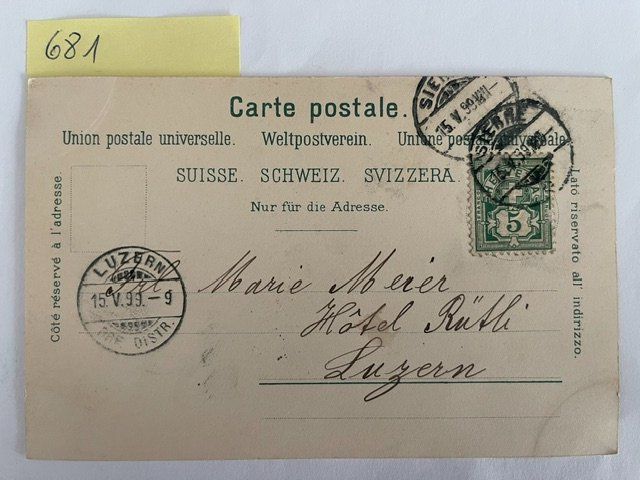 681
Carte postale.
Union postale universelle. Weltpostverein. Unione postale universale
SUISSE. SCHWEIZ. SVIZZERA.
Nur für die Adresse.
Côté réservé à l'adresse.
Lato riservato all' indirizzo.
SIERRE
15.V.99
SIERRE
5
LUZERN
15.V.99.-9
DISTR.
Frl Marie Meier
Hôtel Rütli
Luzern